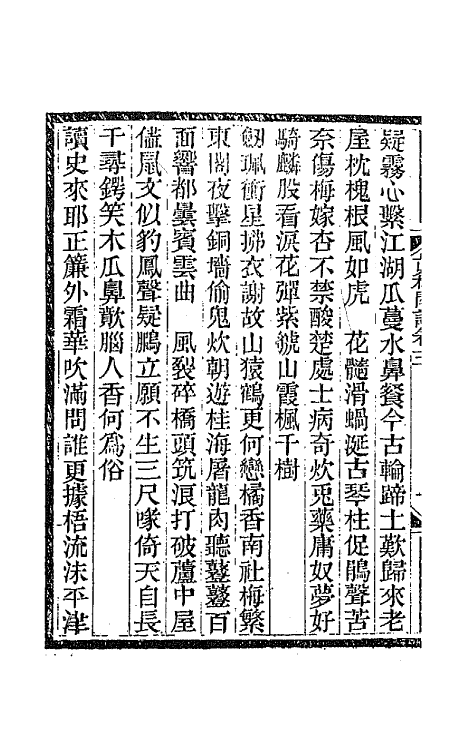 疑霧心繫江湖瓜蔓水鼻餐今古輪蹄土歎歸來老
屋枕槐根風如虎　花髓滑蝸涎古琴柱促鵑聲苦
奈傷梅嫁杏不禁酸楚處士病奇炊兎藥庸奴夢好
騎麟股看淚花彈紫虢山霞楓千樹
劔珮衝星拂衣謝故山猿鶴更何戀橘香南社梅繁
東閣夜擊銅墻偷鬼炊朝遊桂海屠龍肉聽鼟鼟百
面響都曇賓雲曲　風裂碎橋頭筑浪打破蘆中屋
儘鼠文似豹鳳聲疑鵬立願不生三尺喙倚天自長
千尋鍔笑木瓜鼻歕腦人香何爲俗
讀史來耶正簾外霜華吹滿問誰更據梧流沫平津